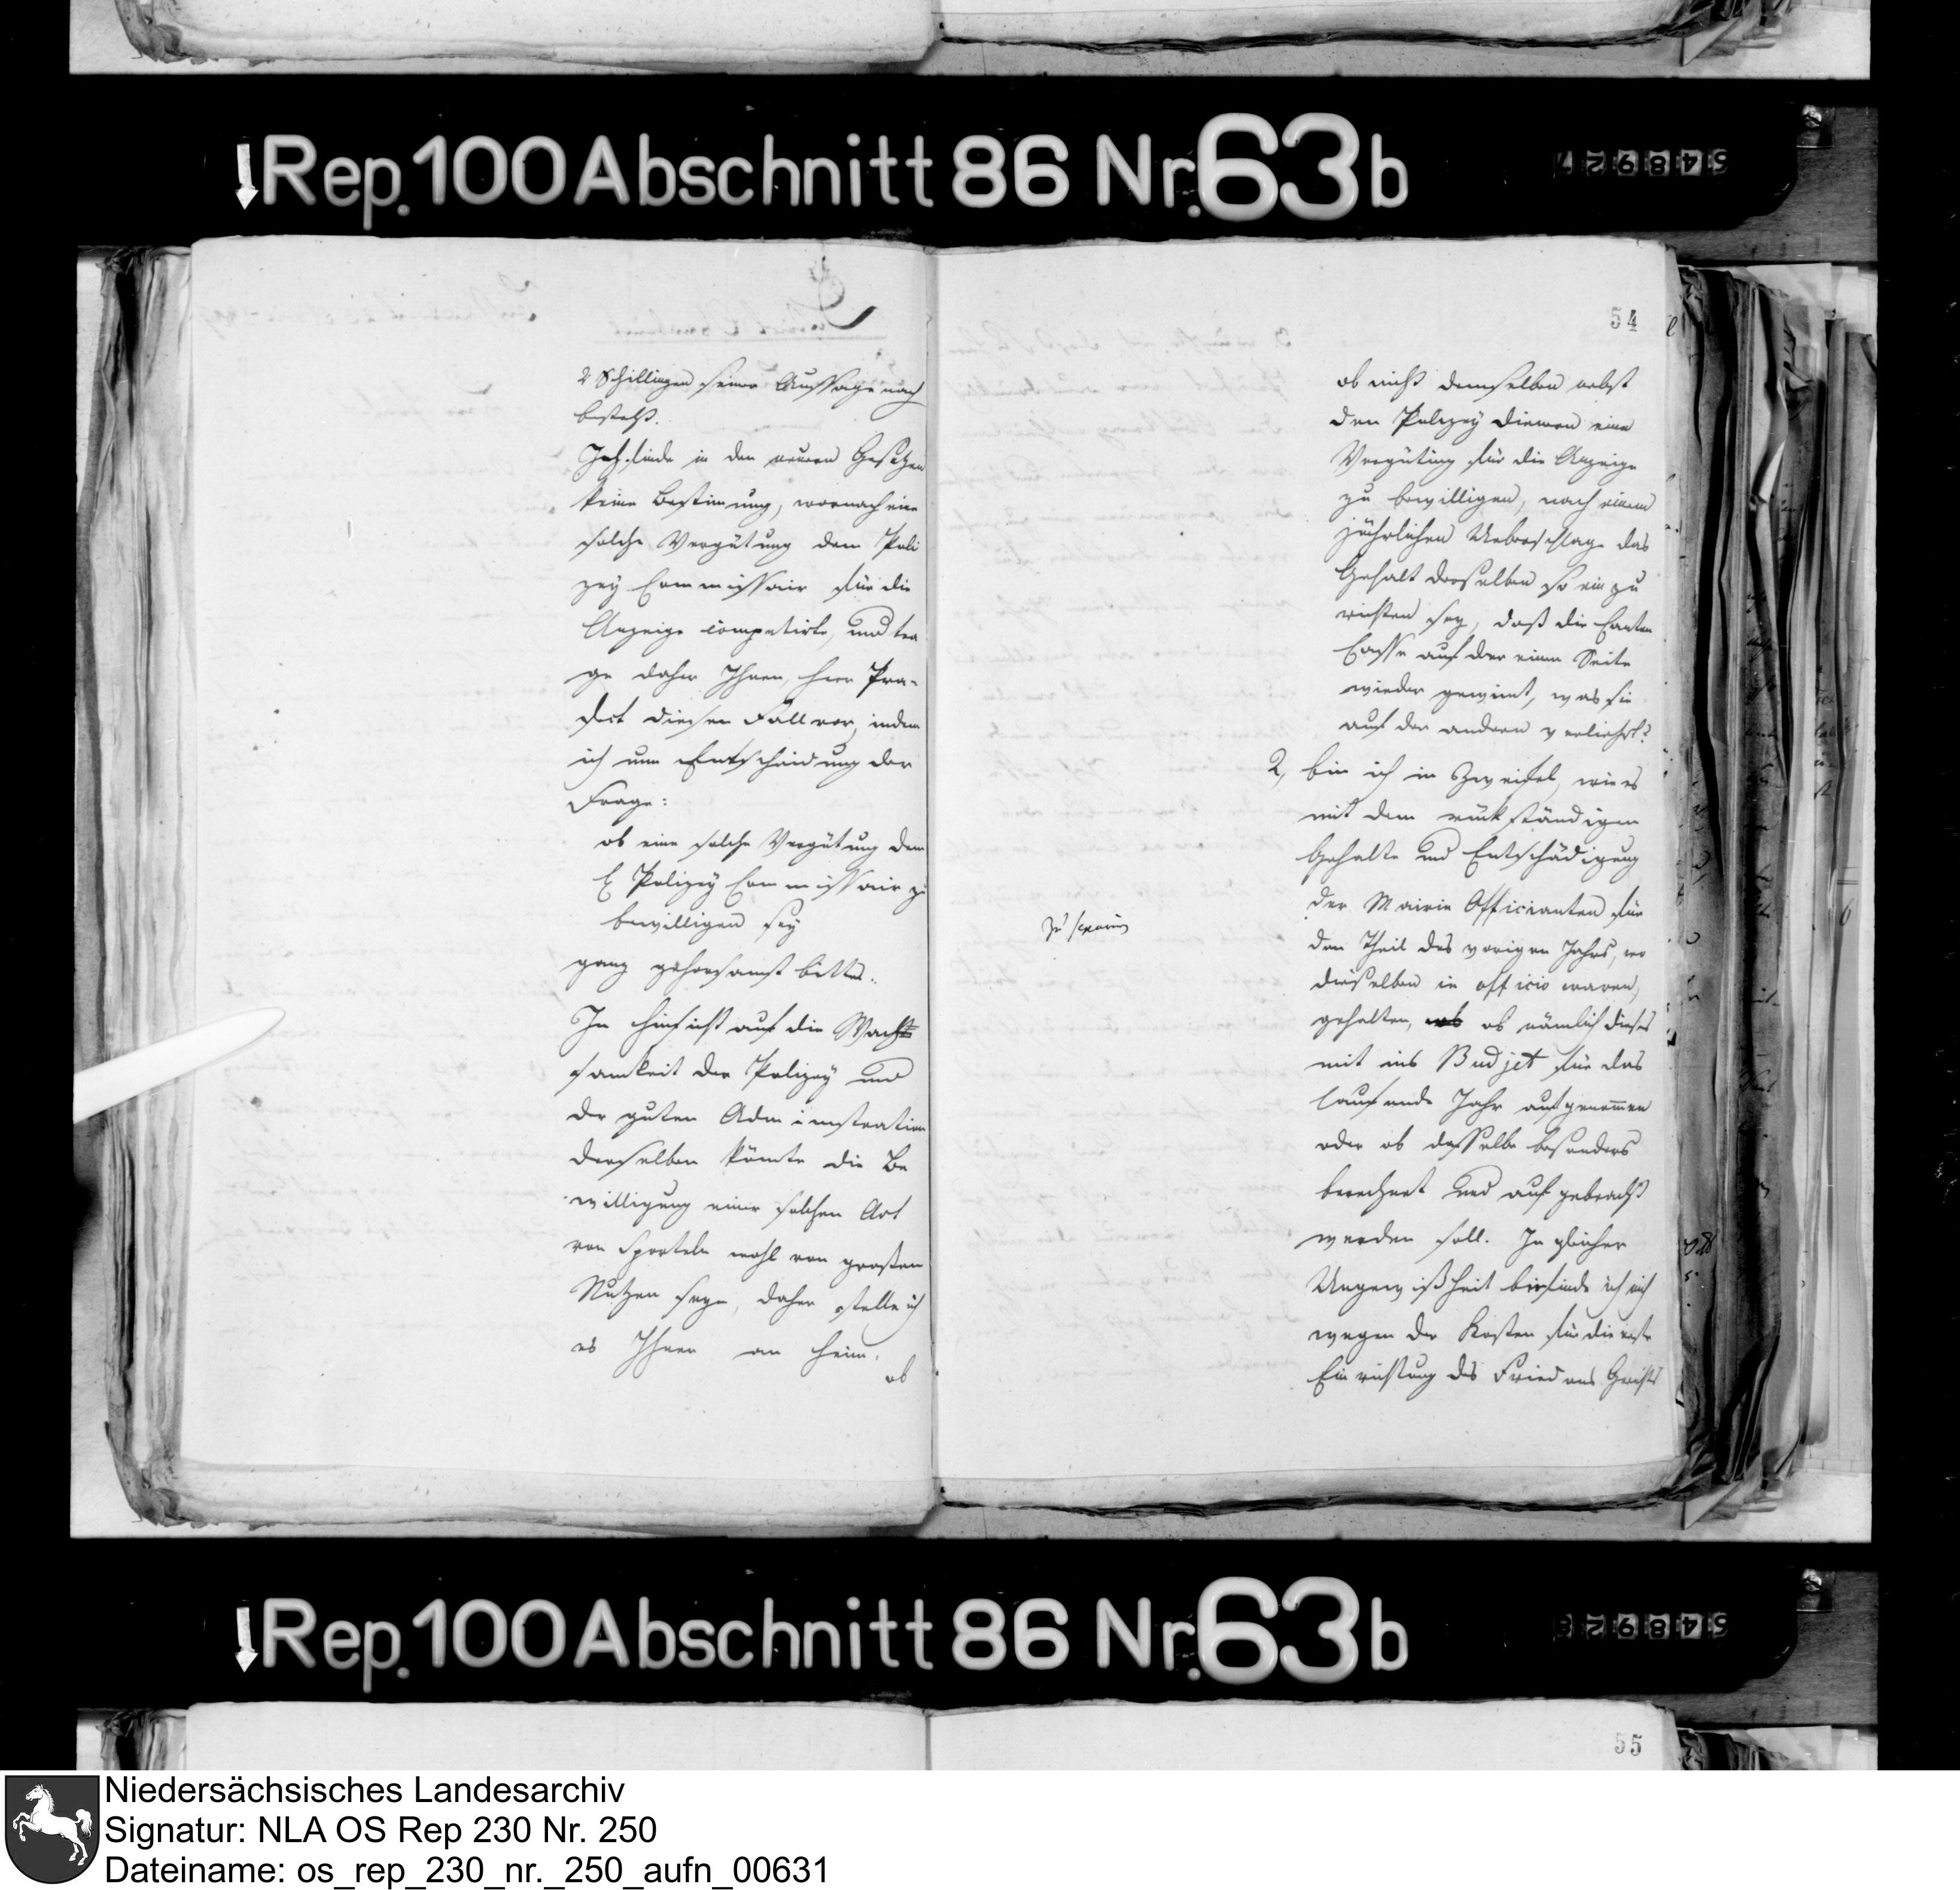 Rep. 100 Abschnitt 86 Nr. 63b
548927
2 Schillingen seiner Aussage nach
besteht.
Ich finde in den neuen Gesetzen
keine Bestimung, wornach eine
solche Vergütung dem Poli
zey Commissair für die
Anzeige competirte, und tra
ge daher Ihnen, Herr Prä-
fect diesen Fall vor, indem
ich um Entscheidung der
Frage:
ob eine solche Vergütung dem
Polizey Commissair zu
bewilligen sey
ganz gehorsamst bitte.
In Hinsicht auf die Wach
samkeit der Polizey und
der guten Administration
derselben könnte die Be
willigung einer solchen Art
von Sporteln wohl von großen
Nutzen seyn, daher stelle ich
es Ihnen an heim,
ob
54
ob nicht demselben nebst
den Polizey Dienern eine
Vergütung für die Anzeige
zu bewilligen, nach einem
jährlichen Ueberschlage das
Gehalt derselben so ein zu
richten sey, daß die Canton
Casse auf der einen Seite
wieder gewinnt, was sie
auf der andern verliehrt?
2, bin ich in Zweifel, wie es
mit dem rückständigen
Gehalte und Entschädigung
der Mairie Officianten für
den Theil des vorigen Jahrs, wo
dieselben in officio waren,
gehalten, ob nämlich dieses
mit ins Budjet für das
laufende Jahr aufgenommen
oder ob dasselbe besonders
berechnet und aufgebracht
werden soll. In gleicher
Ungewißheit befinde ich mich
wegen der Kosten für die erste
Einrichtung des Friedens Gerichts
Rep. 100 Abschnitt 86 Nr. 63b
54892
55
Niedersächsisches Landesarchiv
Signatur: NLA OS Rep 230 Nr. 250
Dateiname: os_rep_230_nr._250_aufn_00631